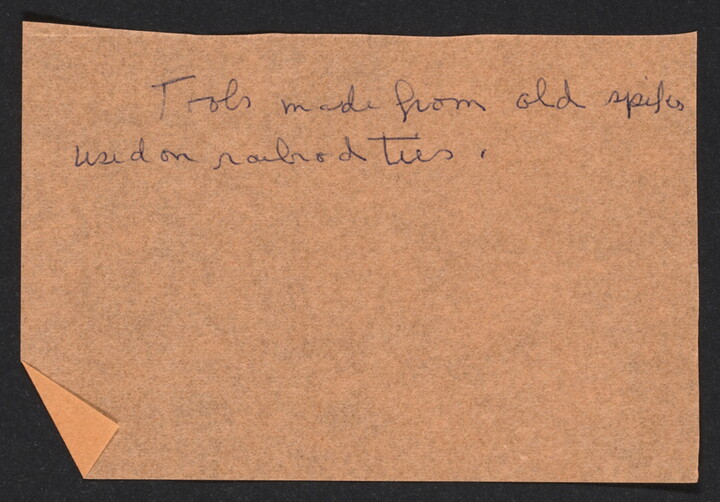 Tools made from old spikes
used on railrod ties.